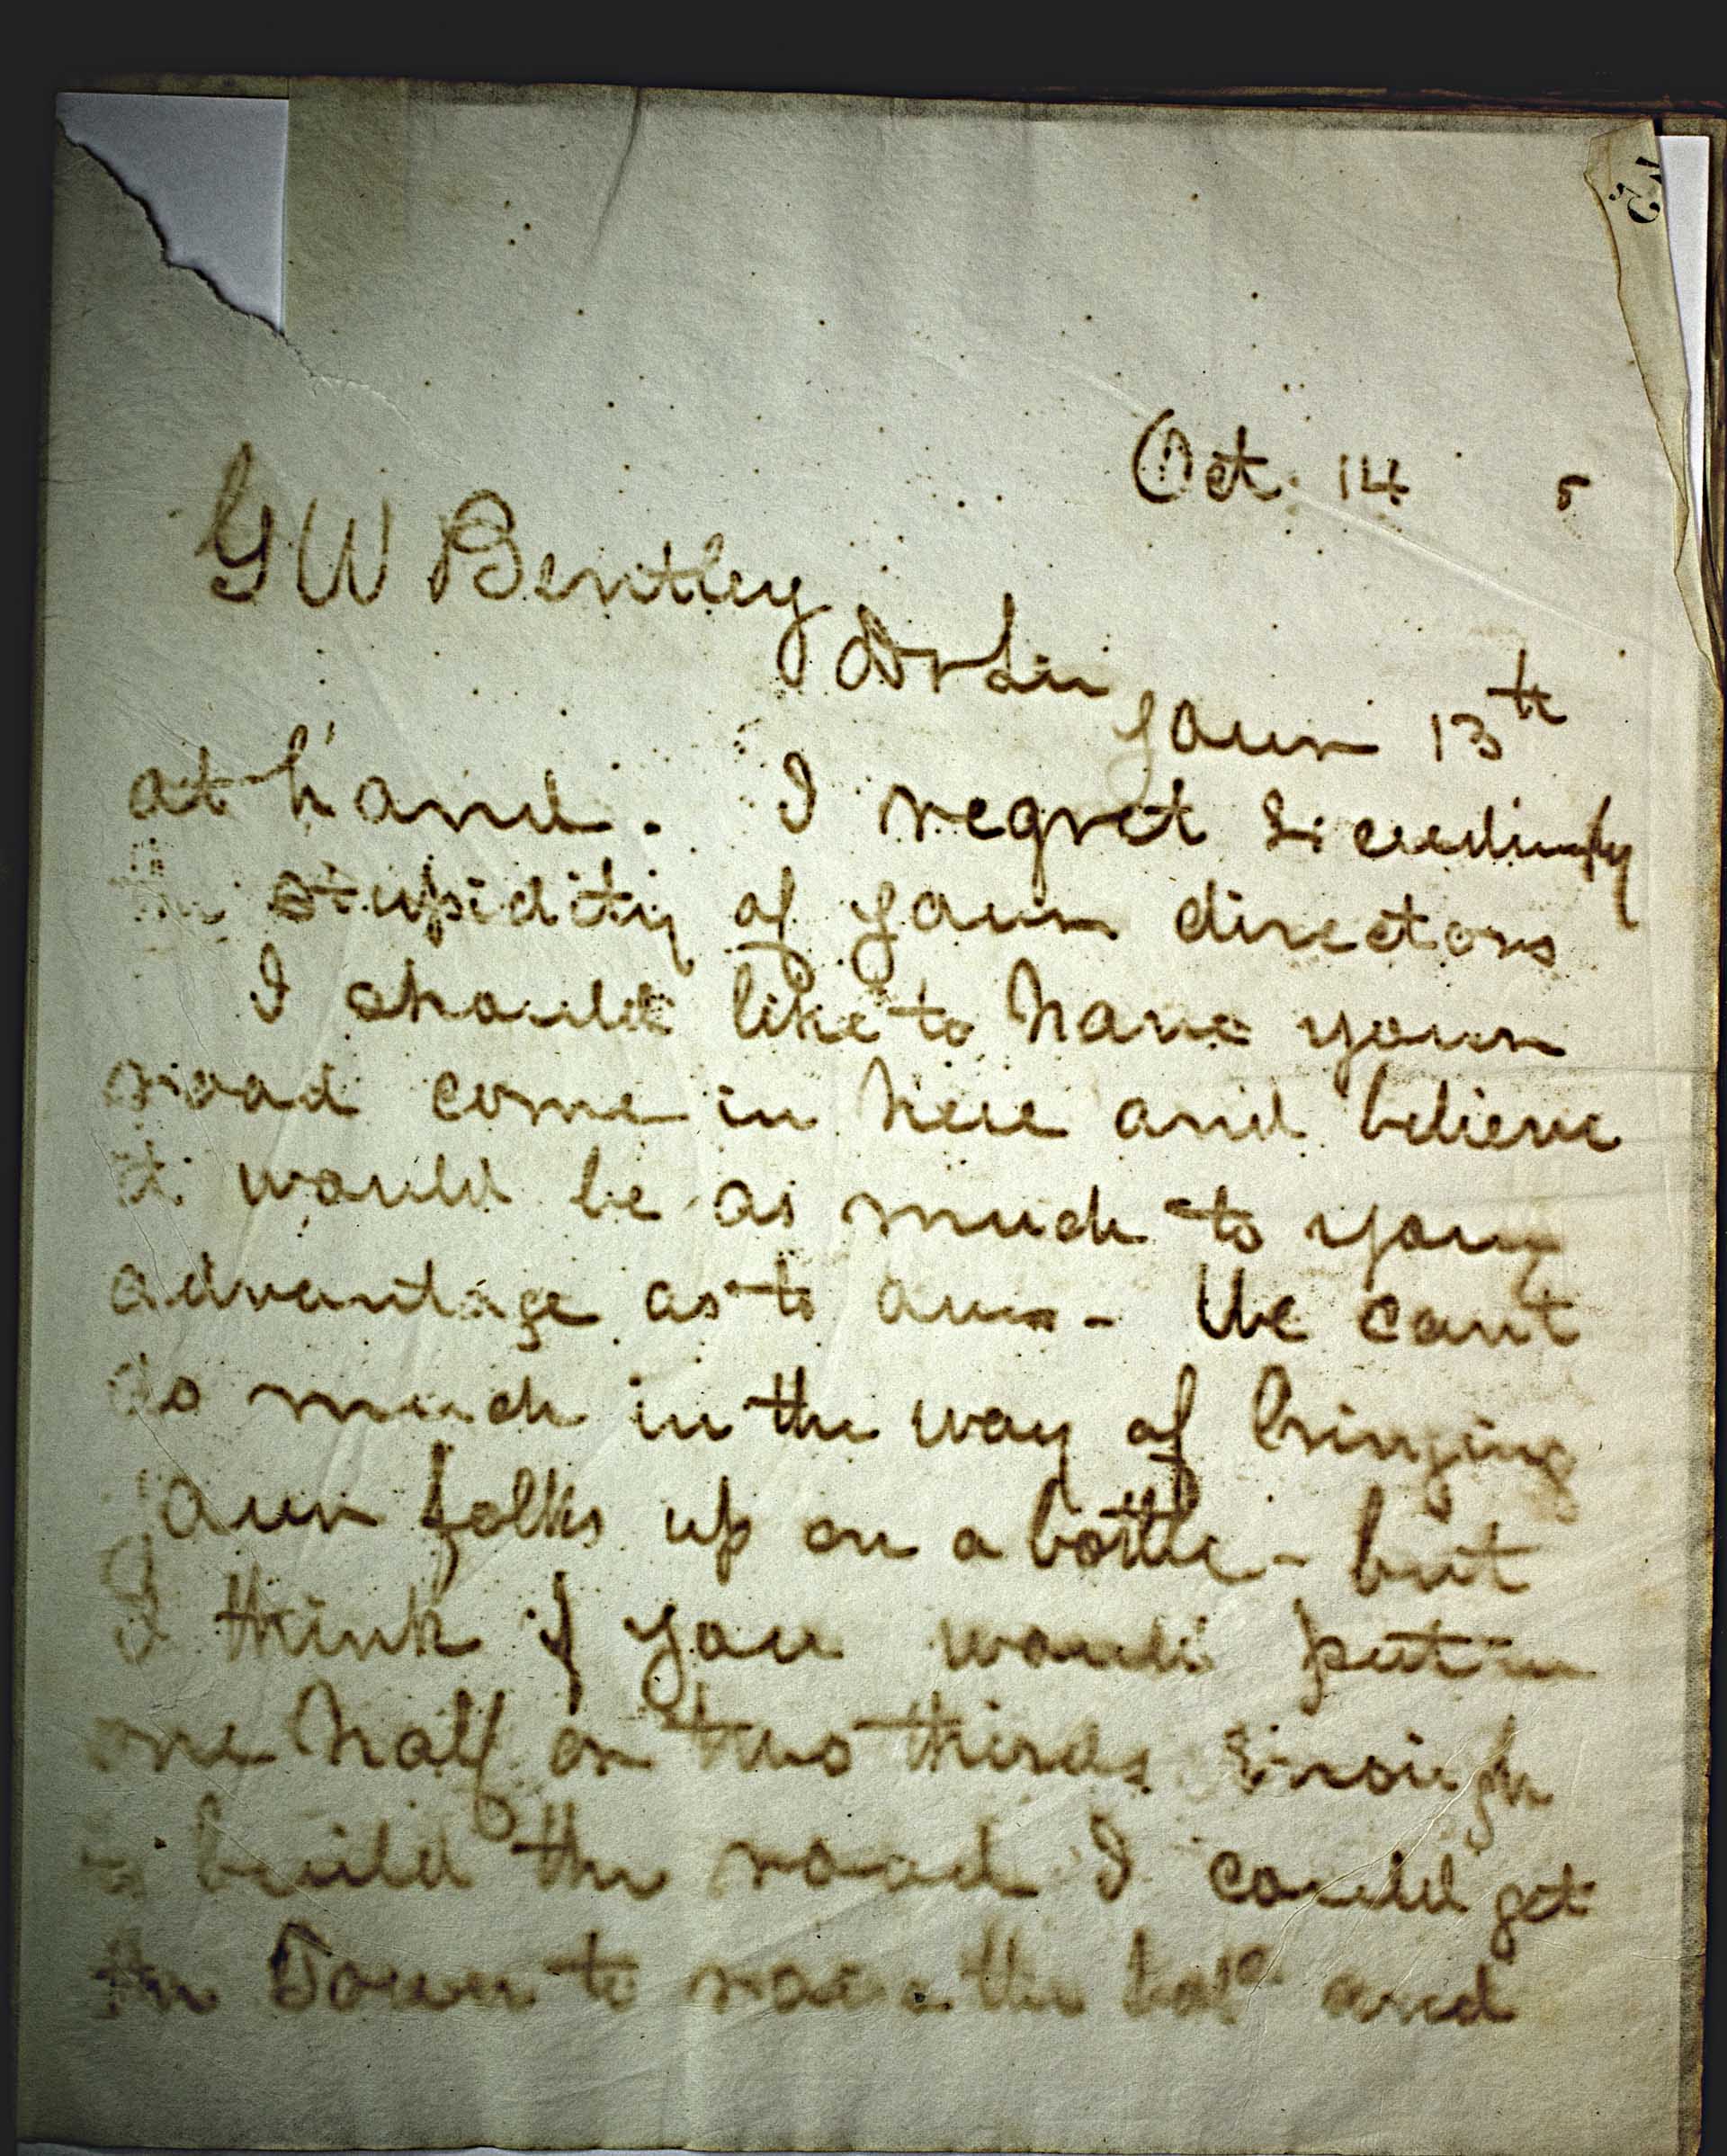 Oct. 14 5
G W Bentley
Dr Sir
Your 13th
at hand. I regret Exceedingly
the stupidity of your directors
I should like to have your
road come in here and believe
it would be as much to your
advantage as to ours - We cant
do much in the way of bringing
our folks up on a bottle - but
I think if you would put in
one half or two thirds Enough
to build the road I could get
the Town to raise the balce and